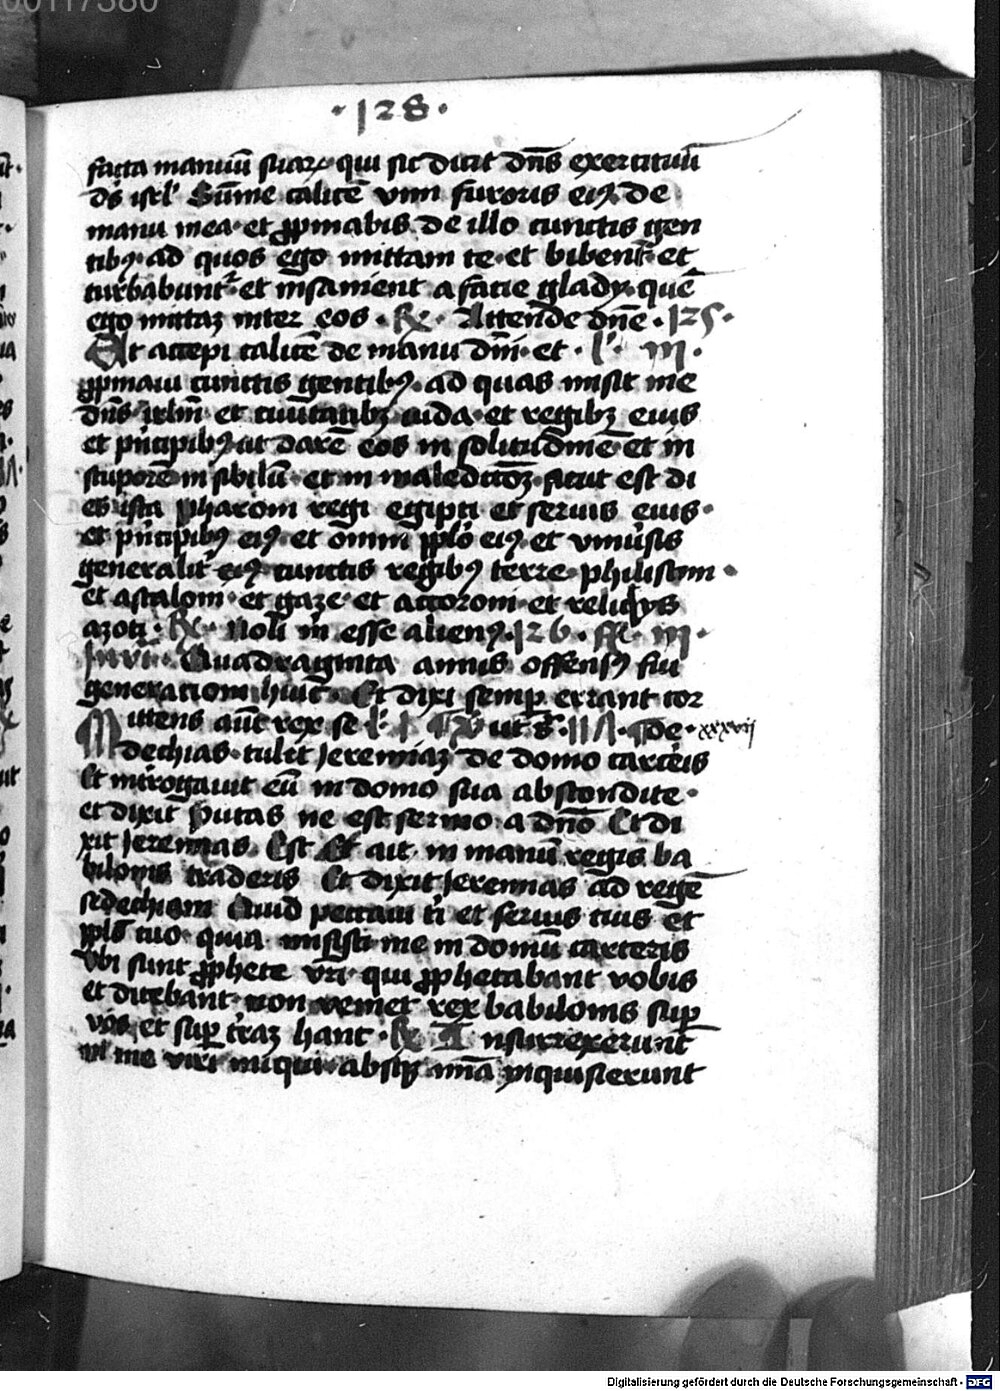 00117380
·128·
facta manuū suaꝝ qui sic dicit dn̄s exercituū
ds̄ isrl' Sūme calicē vini furoris eiꝰ de
manu mea et ꝓpinabis de illo cunctis gen
tibꝰ ad quos ego mittam te et bibent et
turbabunt' et insanient a facie gladij quē
ego mittaʒ inter eos · ꝶ · Attende dn̄e ·125·
Et accepi calicē de manu dn̄i et · l' · iij ·
ꝓpinaui cunctis gentibꝰ ad quas misit me
dn̄s irlm̄ et ciuitatibʒ iuda et regibʒ eius
et pn̄cipibꝰ ut darē eos in solitudinē et in
stuporē in sibilū et in maledictōeʒ sicut est di
es ista pharoni regi egipti et seruis eius
et pn̄cipibꝰ eiꝰ et omni pplō eiꝰ et vniūsis
generalit' eiꝰ cunctis regibꝰ terre philistim
et ascalom et gaze et accoroni et reliquijs
azoti · ꝶ · Noli m̄ esse alienꝰ ·126· fr̄ · iij ·
Inui · Quadraginta annis offensꝰ fui
generationi huic Et dixi semp errant cor
Mittens aūt rex se l' · I · ut s̄ · de · xxxvij
dechias tulit Jeremiaʒ de domo carceris
Et interogauit eū in domo sua abscondite
et dixit Putas ne est sermo a dn̄o Et di
xit Jeremias Est Et ait in manu regis ba
bilonis traderis Et dixit Jeremias ad regē
sedechiam Quid peccaui ti et seruis tuis et
pplō tuo quia misisti me in domū carceris
Vbi sunt ꝓphete vr̄i qui ꝓphetabant vobis
et dicebant non veniet rex babilonis sup
vos et sup terraʒ hanc · ꝶ Insurrexerunt
in me viri iniqui absqꝫ mīa inquisierunt
Digitalisierung gefördert durch die Deutsche Forschungsgemeinschaft - DFG